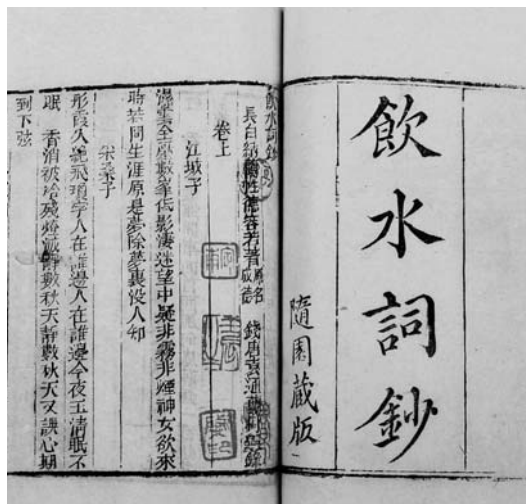 飲水詞鈔
隨園藏版
飲水詞鈔
長白納蘭性德容若著 原名成德 錢唐袁通
卷上
江城子
濕雲全壓數峯低影淒迷望中疑非霧非煙神女欲來
時若問生涯原是夢除夢裏没人知
采桑子
彤霞久絕飛瓊字人在誰邊人在誰邊今夜玉清眠不
眠 香消被冷殘燈滅靜數秋天靜數秋天又誤心期
到下弦